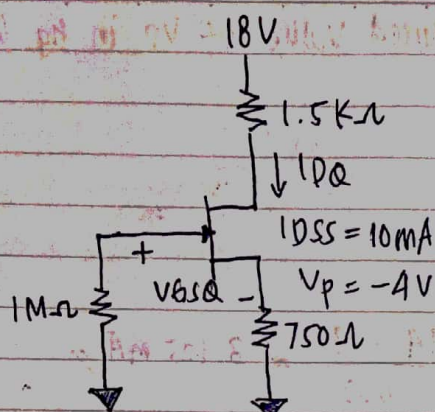 18V
1.5KΩ
IDQ
IDSS = 10mA
+
VGSQ -
Vp = -4V
1MΩ
750Ω